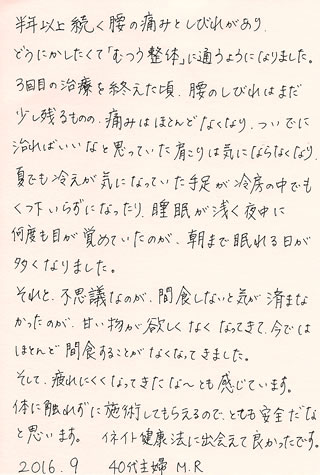 半年以上続く腰の痛みとしびれがあり、
どうにかしたくて「むつう整体」に通うようになりました。
3回目の治療を終えた頃、腰のしびれはまだ
少し残るものの、痛みはほとんどなくなり、ついでに
治ればいいなと思っていた肩こりは気にならなくなり、
夏でも冷えが気になっていた手足が冷房の中でも
くつ下いらずになったり、睡眠が浅く夜中に
何度も目が覚めていたのが、朝まで眠れる日が
多くなりました。
それと、不思議なのが、間食しないと気が済まな
かったのが、甘い物が欲しくなくなってきて、今では
ほとんど間食することがなくなってきました。
そして、疲れにくくなってきたな〜とも感じています。
体に触れずに施術してもらえるので、とても安全だな
と思います。 イネイト健康法に出会えて良かったです。
2016.9 40代主婦 M.R